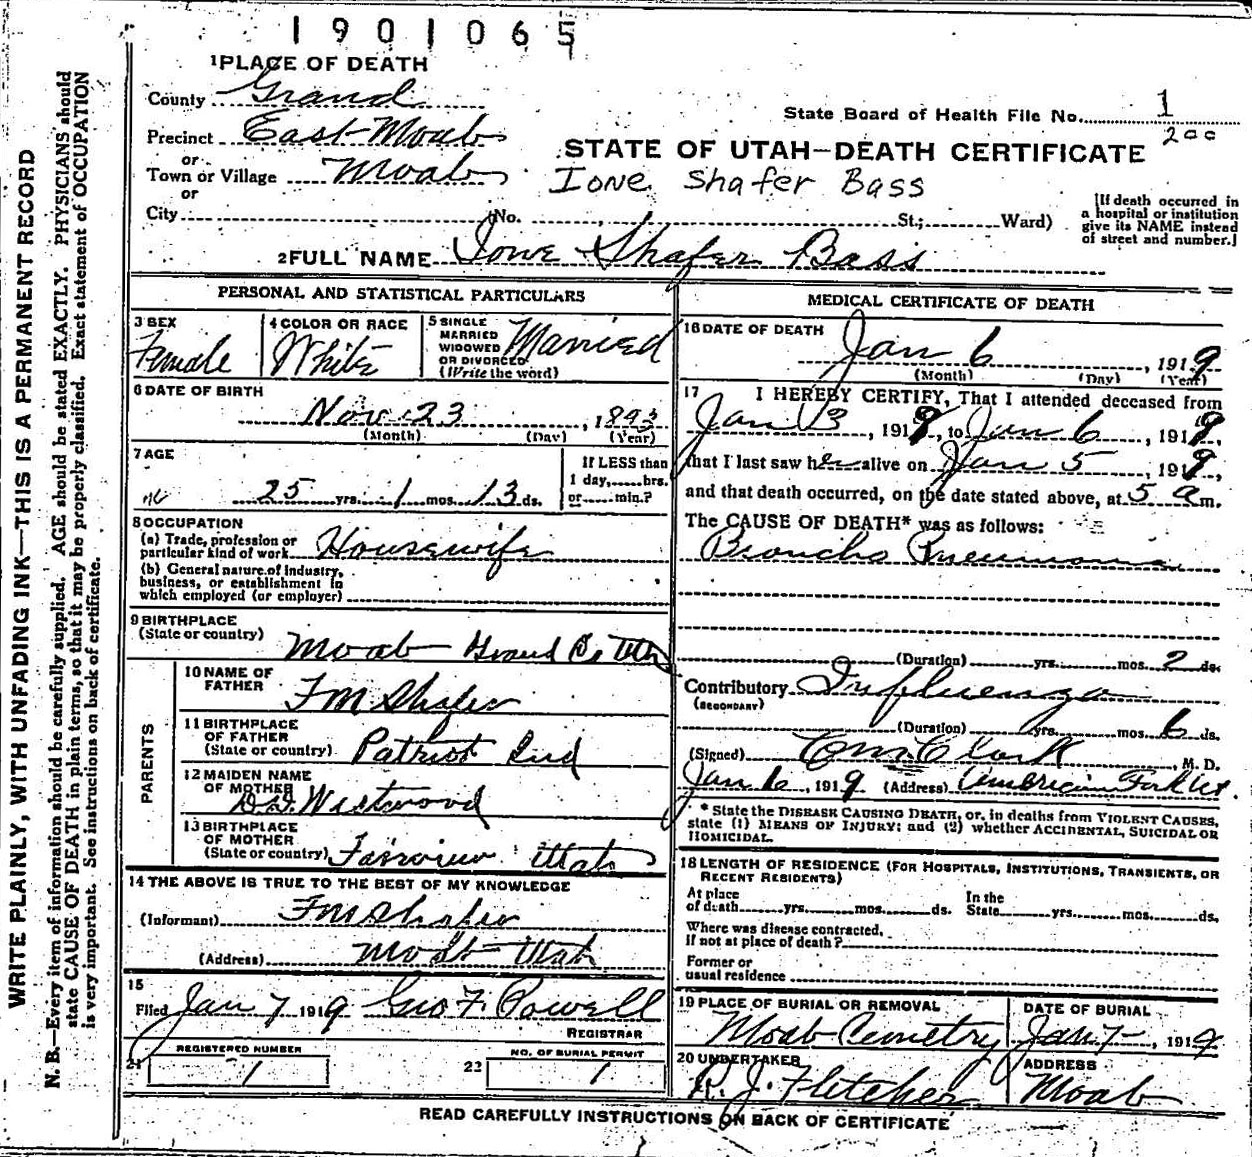 1901065
1 PLACE OF DEATH
County Grand
State Board of Health File No. 1
200
Precinct East Moab
or
STATE OF UTAH—DEATH CERTIFICATE
Town or Village Moab
Ione Shafer Bass
or
City No. St.; Ward)
[If death occurred in
a hospital or institution
give its NAME instead
of street and number.]
2 FULL NAME Ione Shafer Bass
PERSONAL AND STATISTICAL PARTICULARS
3 SEX
Female
4 COLOR OR RACE
White
5 SINGLE
MARRIED
WIDOWED
OR DIVORCED
(Write the word)
Married
6 DATE OF BIRTH
Nov 23, 1893
(Month) (Day) (Year)
7 AGE
25 yrs. 1 mos. 13 ds.
If LESS than
1 day, hrs.
or min.?
8 OCCUPATION
(a) Trade, profession or
particular kind of work Housewife
(b) General nature of industry,
business, or establishment in
which employed (or employer)
9 BIRTHPLACE
(State or country) Moab Grand Co Utah
PARENTS
10 NAME OF
FATHER
F M Shafer
11 BIRTHPLACE
OF FATHER
(State or country) Patriot Ind
12 MAIDEN NAME
OF MOTHER
Westwood
13 BIRTHPLACE
OF MOTHER
(State or country) Fairview Utah
14 THE ABOVE IS TRUE TO THE BEST OF MY KNOWLEDGE
(Informant) F M Shafer
(Address) Moab Utah
15
Filed Jan 7 1919 Geo F. Powell
REGISTRAR
21 REGISTERED NUMBER
1
22 NO. OF BURIAL PERMIT
1
MEDICAL CERTIFICATE OF DEATH
16 DATE OF DEATH
Jan 6, 1919
(Month) (Day) (Year)
17 I HEREBY CERTIFY, That I attended deceased from
Jan 3, 1919, to Jan 6, 1919,
that I last saw her alive on Jan 5, 1919,
and that death occurred, on the date stated above, at 5 a m.
The CAUSE OF DEATH* was as follows:
Broncho Pneumonia
(Duration) yrs. mos. 2 ds.
Contributory Influenza
(SECONDARY)
(Duration) yrs. mos. 6 ds.
(Signed) Clark, M. D.
Jan 6, 1919 (Address) American Fork Ut.
* State the DISEASE CAUSING DEATH, or, in deaths from VIOLENT CAUSES,
state (1) MEANS OF INJURY; and (2) whether ACCIDENTAL, SUICIDAL OR
HOMICIDAL.
18 LENGTH OF RESIDENCE (FOR HOSPITALS, INSTITUTIONS, TRANSIENTS, OR
RECENT RESIDENTS)
At place
of death yrs. mos. ds.
In the
State yrs. mos. ds.
Where was disease contracted,
if not at place of death?
Former or
usual residence
19 PLACE OF BURIAL OR REMOVAL
Moab Cemetry
DATE OF BURIAL
Jan 7, 1919
20 UNDERTAKER
R. J. Fletcher
ADDRESS
Moab
READ CAREFULLY INSTRUCTIONS ON BACK OF CERTIFICATE
WRITE PLAINLY, WITH UNFADING INK—THIS IS A PERMANENT RECORD
N. B.—Every item of information should be carefully supplied. AGE should be stated EXACTLY. PHYSICIANS should
state CAUSE OF DEATH in plain terms, so that it may be properly classified. Exact statement of OCCUPATION
is very important. See instructions on back of certificate.